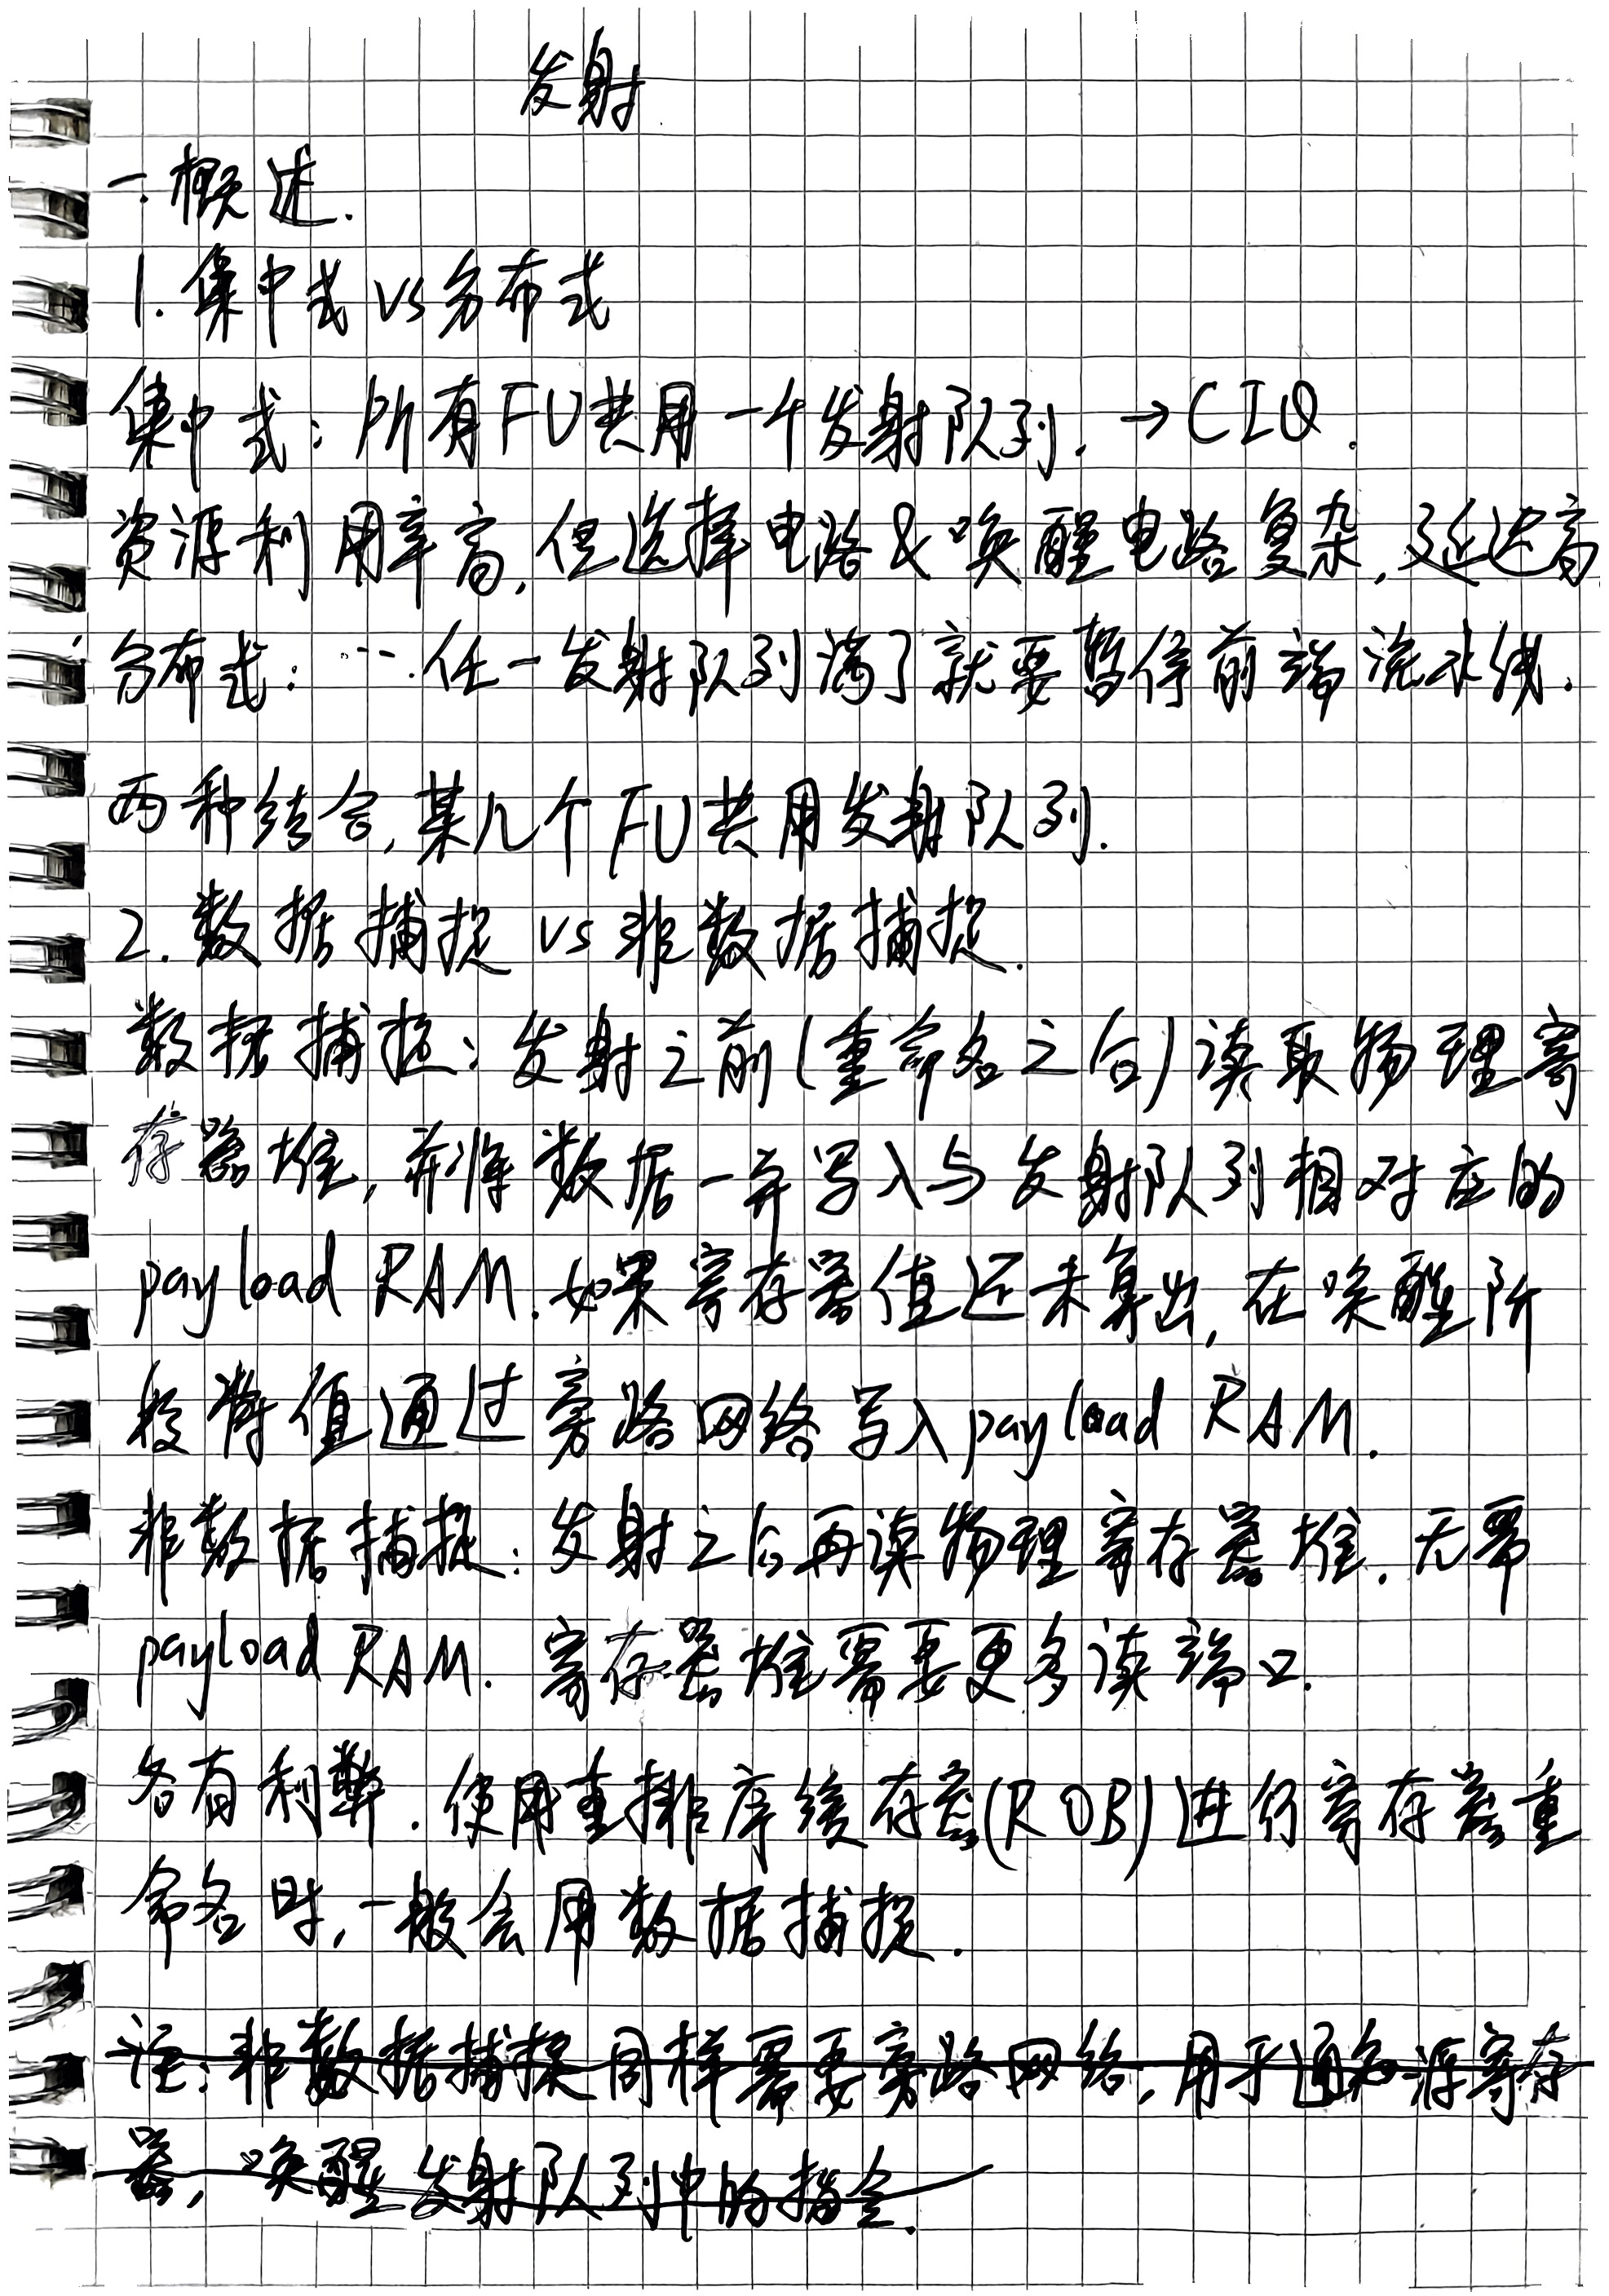 发射
一.概述.
1.集中式 vs 分布式
集中式:所有FU共用一个发射队列.→CIQ.
资源利用率高,但选择电路&唤醒电路复杂,延迟高.
分布式:…任一发射队列满了就要暂停前端流水线.
两种结合,某几个FU共用发射队列.
2.数据捕捉 vs 非数据捕捉.
数据捕捉:发射之前(重命名之后)读取物理寄
存器堆,并将数据一并写入与发射队列相对应的
payload RAM.如果寄存器值还未算出,在唤醒阶
段将值通过旁路网络写入payload RAM.
非数据捕捉:发射之后再读物理寄存器堆.无需
payload RAM.寄存器堆需要更多读端口.
各有利弊.使用重排序缓存器(ROB)进行寄存器重
命名时,一般会用数据捕捉.
注:非数据捕捉同样需要旁路网络,用于通知源寄存
器,唤醒发射队列中的指令.